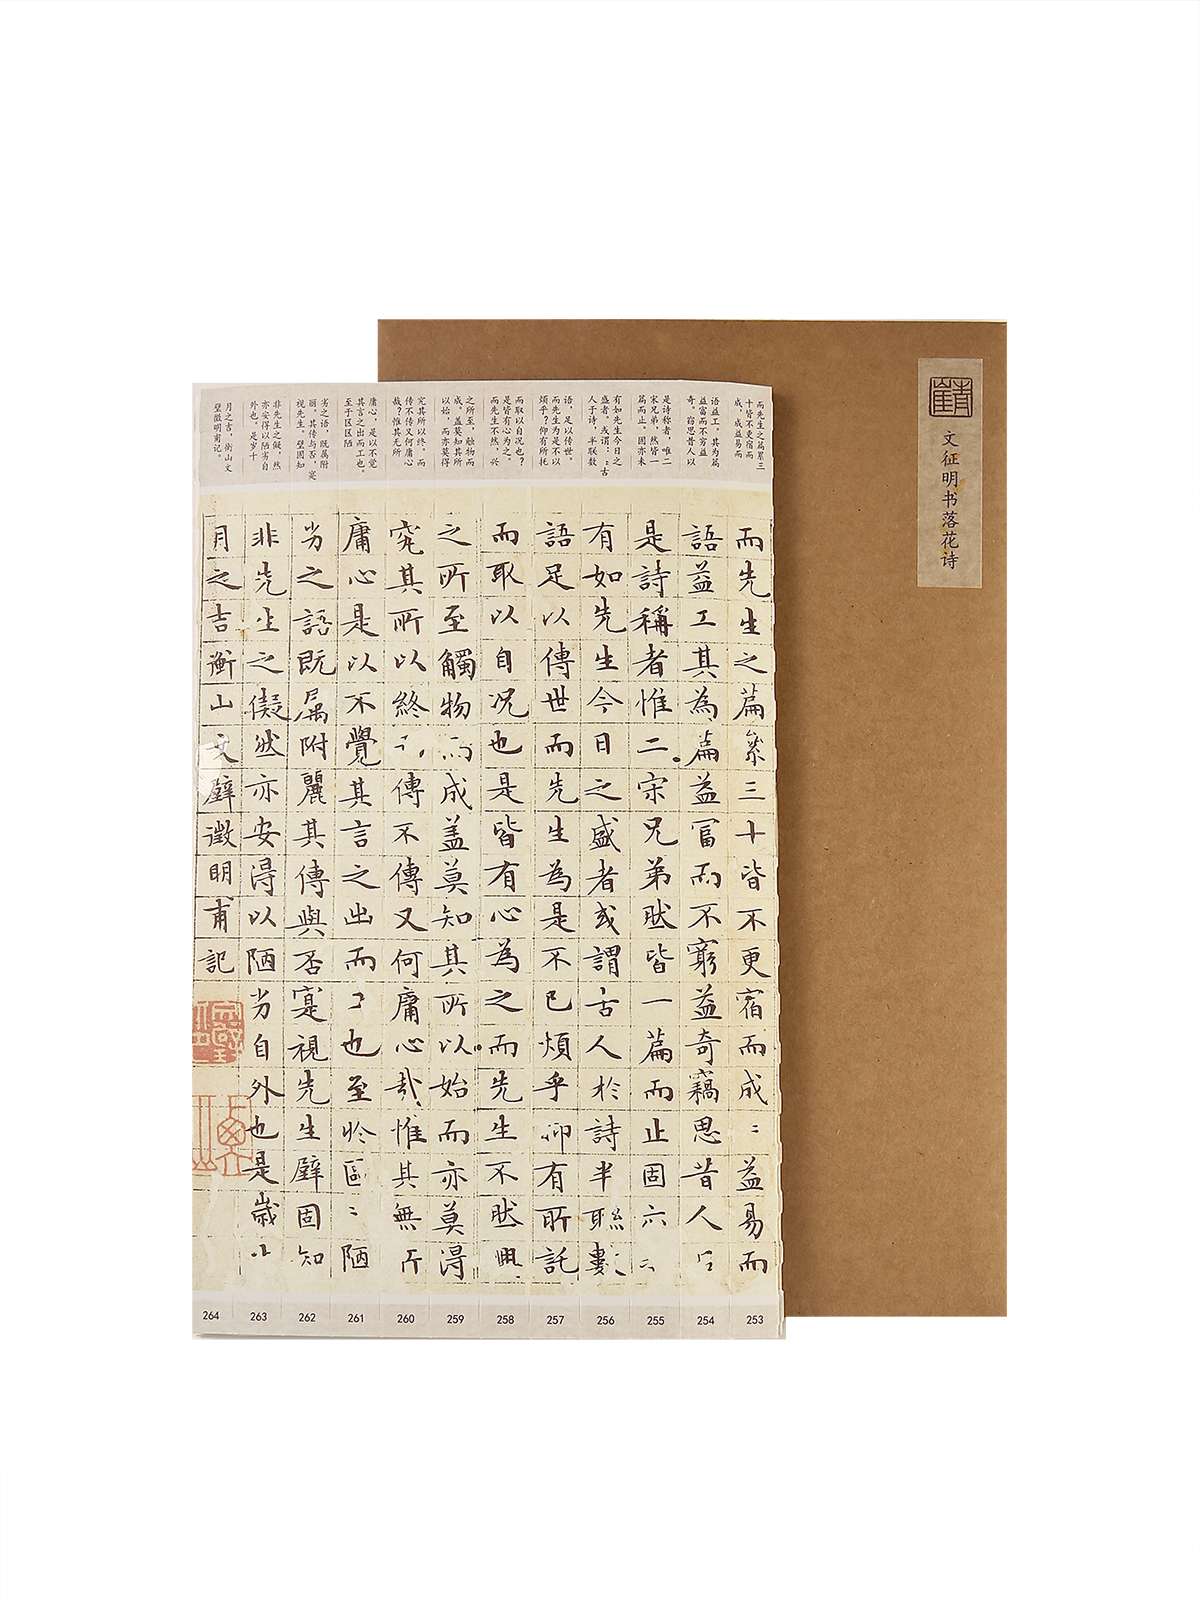 文征明书落花诗
而先生之篇累三
十皆不更宿而
成，成益易而
语益工。其为篇
益富而不穷益
奇。窃思昔人以
是诗称者，唯二
宋兄弟，然皆一
篇而止。固亦未
有如先生今日之
盛者。或谓：古
人于诗，半联数
语，足以传世。
而先生为是不以
烦乎？仰有所托
而取以自况也？
是皆有心为之。
而先生不然，兴
之所至，触物而
成。盖莫知其所
以始，而亦莫得
究其所以终。而
传不传又何庸心
哉？惟其无所
庸心，是以不觉
其言之出而工也。
至于区区陋
劣之语，既属附
丽，其传与否，寔
视先生。壁固知
非先生之儗，然
亦安得以陋劣自
外也。是岁十
月之吉，衡山文
壁徵明甫记。
而先生之篇絫三十皆不更宿而成〻益易而
語益工其為篇益富而不窮益奇竊思昔人
是詩稱者惟二宋兄弟然皆一篇而止固亦
有如先生今日之盛者或謂古人於詩半聮數
語足以傳世而先生為是不已煩乎仰有所託
而取以自况也是皆有心為之而先生不然興
之所至觸物而成盖莫知其所以始而亦莫淂
究其所以終傳不傳又何庸心哉惟其無所
庸心是以不覺其言之出而工也至於區〻陋
劣之語既属附麗其傳與否寔視先生壁固知
非先生之儗然亦安淂以陋劣自外也是歲十
月之吉衡山文壁徵明甫記
264 263 262 261 260 259 258 257 256 255 254 253